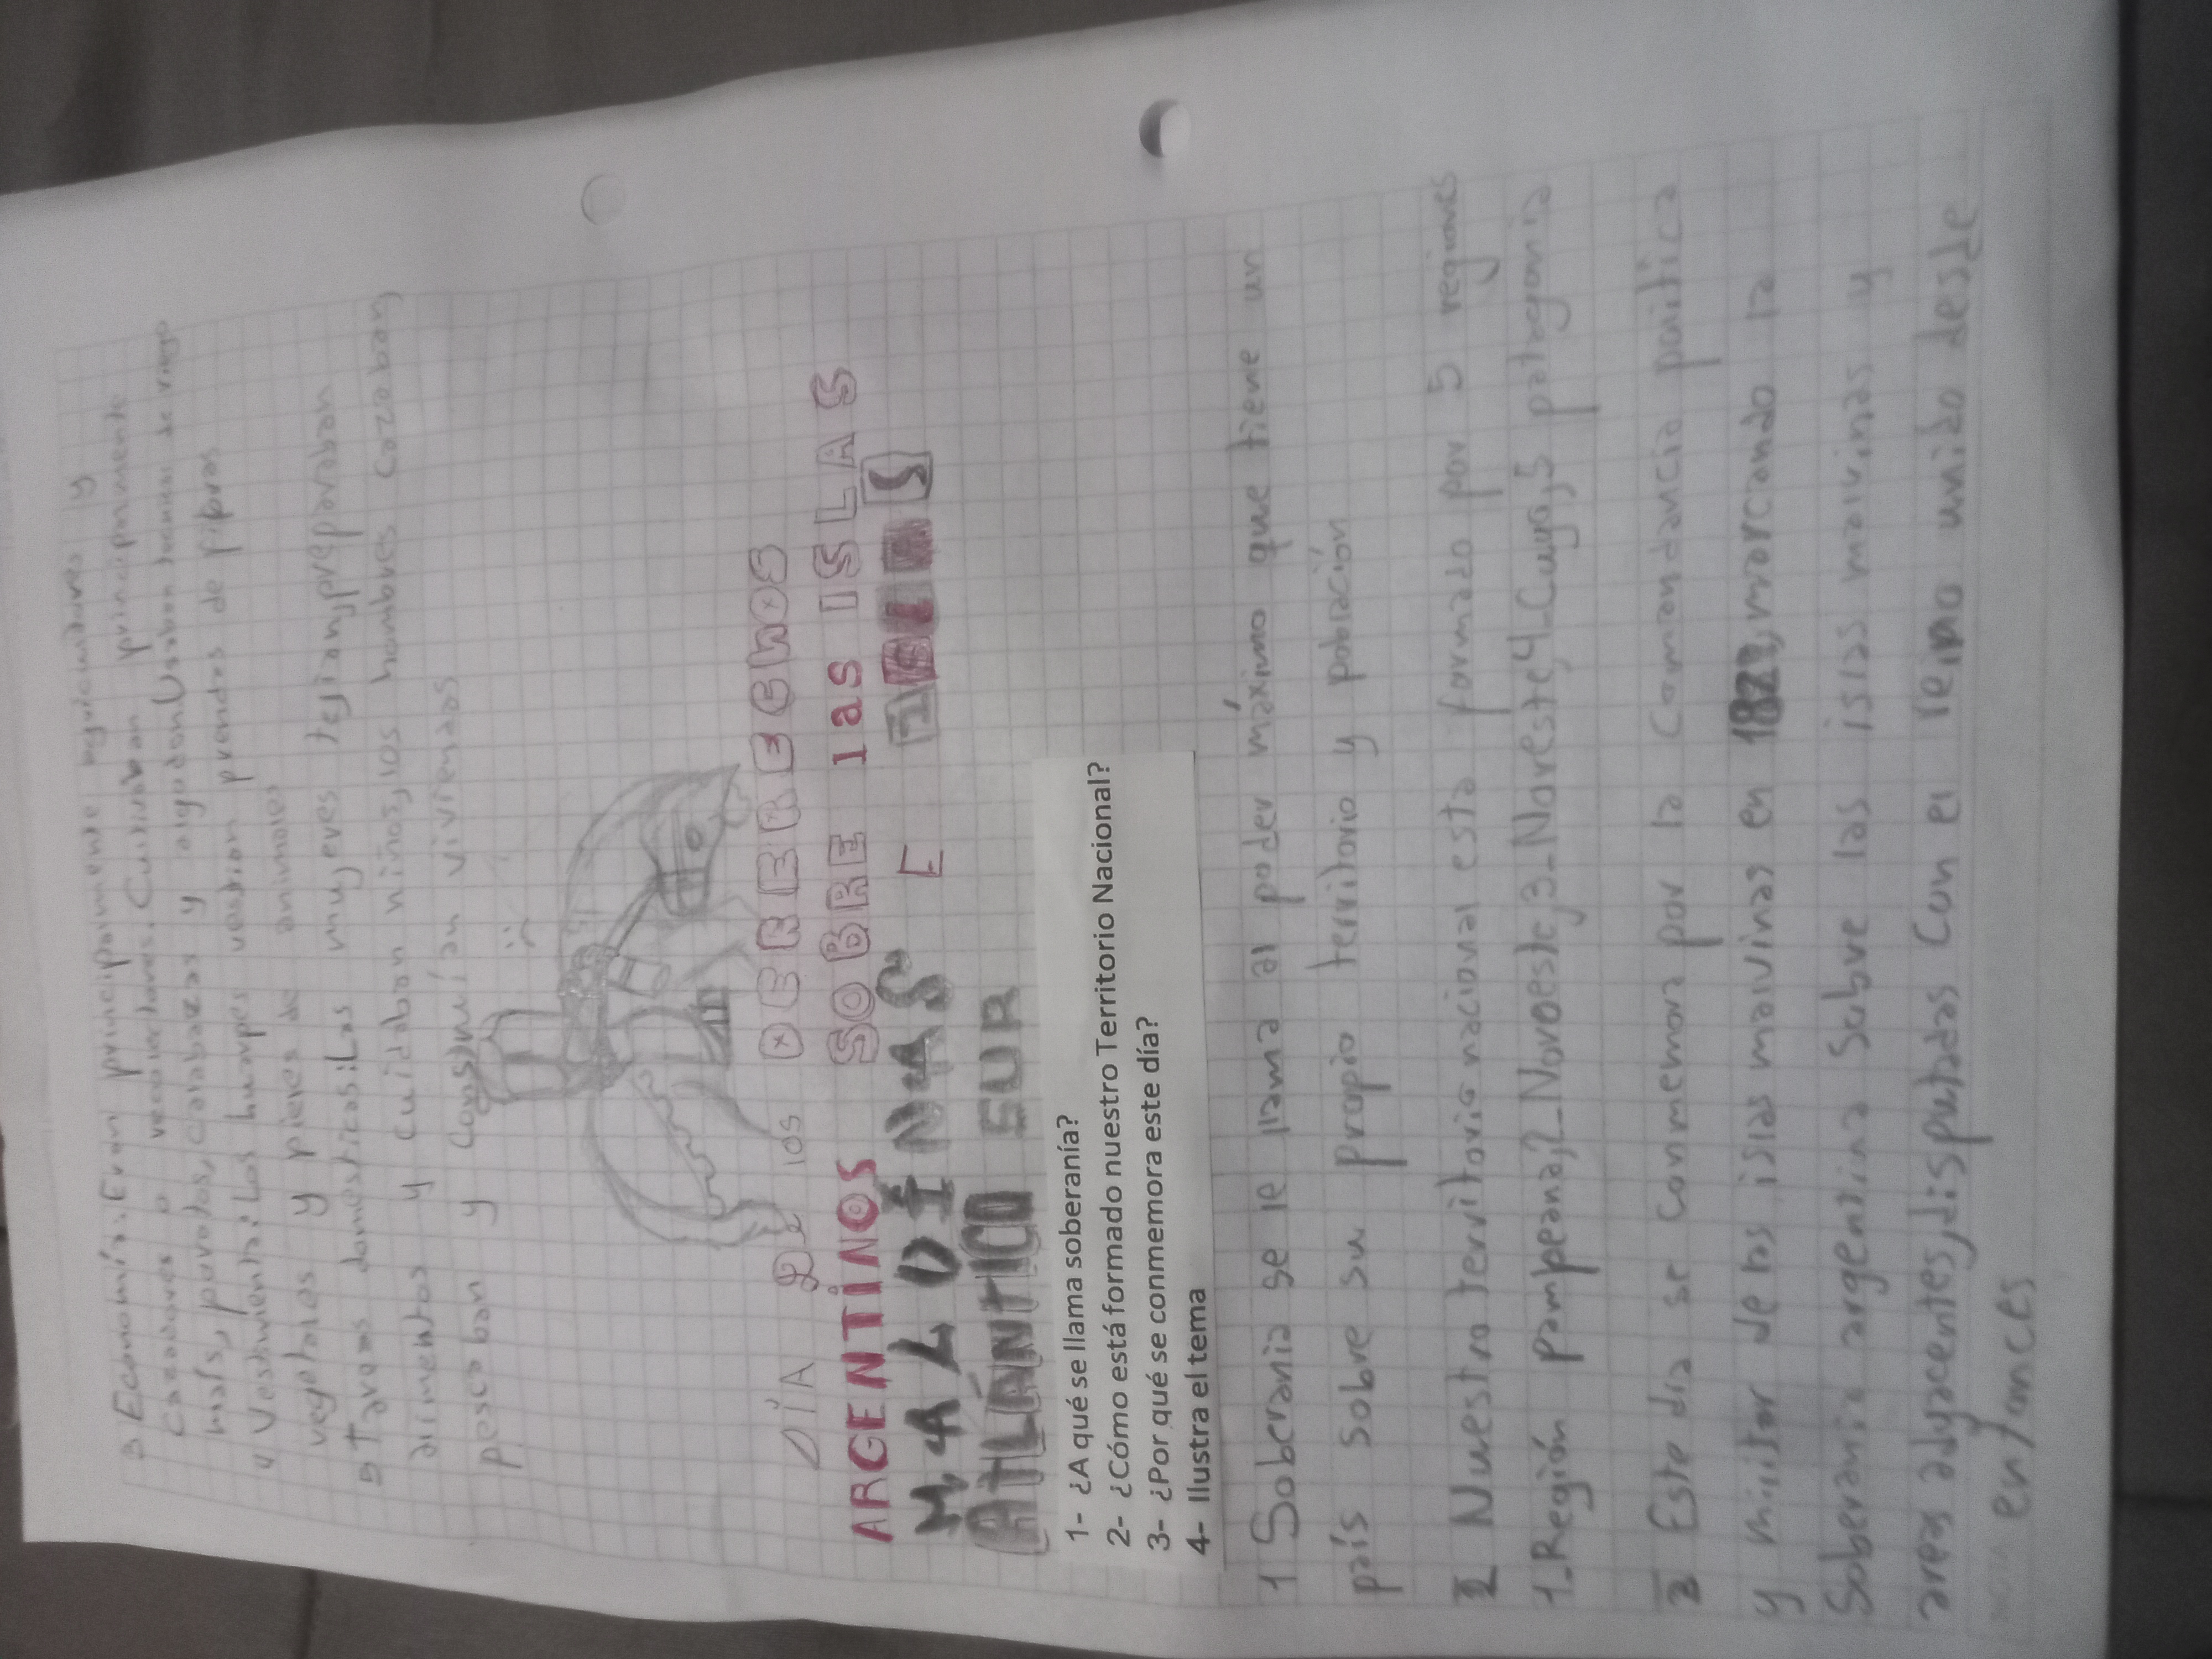 3 Economía: Eran principalmente agricultores y
cazadores o recolectores. Cultivaban principalmente
maís, porotos, calabazas y algodon Usaban tecnicas de riego
4 Vestimenta: Los huarpes vestian prendas de fibras
vegetales y pieles de animales
5 Tareas domesticas: Las mujeres tejian, preparaban
alimentos y cuidaban niños, los hombres cazaban
pescaban y Construían viviendas
DÍA DE los DERERECHOS
ARGENTINOS SOBRE las ISLAS
MALVINAS E ISLAS
ATLÁNTICO SUR
1- ¿A qué se llama soberanía?
2- ¿Cómo está formado nuestro Territorio Nacional?
3- ¿Por qué se conmemora este día?
4- Ilustra el tema
1 Soberania se le llama al poder máximo que tiene un
país sobre su propio territorio y población
2 Nuestro territorio nacional esta formado por 5 regiones
1_Región pampeana, 2_Noroeste, 3_Noreste, 4_Cuyo, 5 patagonia
3 Este dia se conmemora por la Comandancia política
y militar de las islas malvinas en 1829, marcando la
Soberania argentina Sobre las islas malvinas y
areas adyacentes, disputadas Con el reino unido desde
entonces